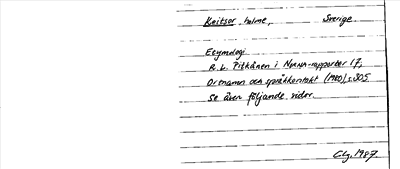 Kritsor, holme, Sverige
Etymologi
R. L. Pitkänen i NORNA-rapporter 17,
Ortnamn och språkkontakt (1980), s. 305
se även följande sidor.
Clg. 1987